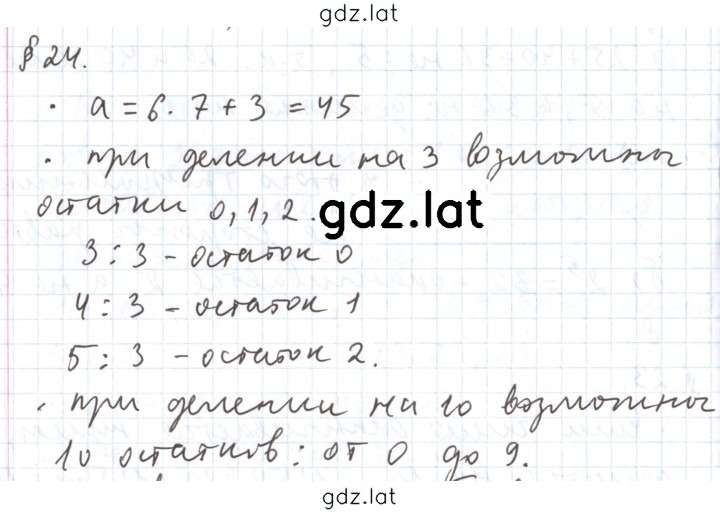 gdz.lat
§ 24.
· a = 6 · 7 + 3 = 45
· при делении на 3 возможны
остатки 0, 1, 2. gdz.lat
3 : 3 – остаток 0
4 : 3 – остаток 1
5 : 3 – остаток 2.
· при делении на 10 возможны
10 остатков: от 0 до 9.
gdz.lat